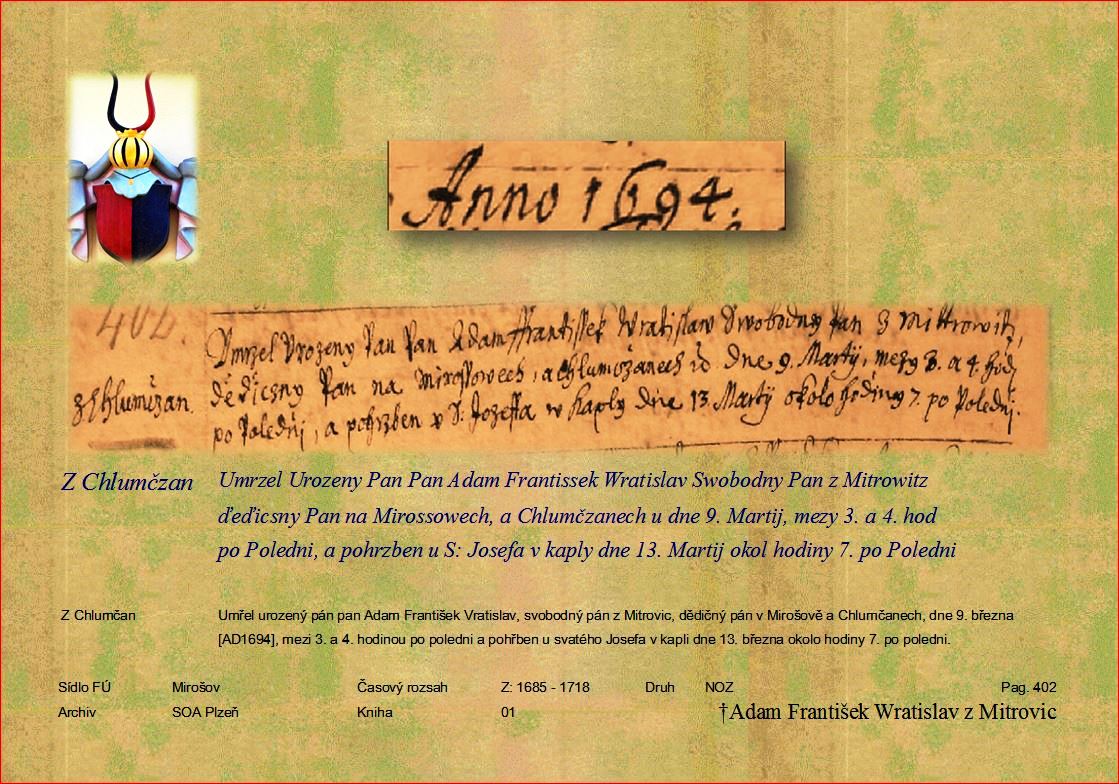 Anno 1694.
402.
Vmrzel Vrozeny Pan Pan Adam Frantissek Wratislaw Swobodny Pan z Mittrowitz,
z Chlumčzan. ďeďicsny Pan na Mirossowech, a Chlumčzanech dne 9. Martij, mezy 3. a 4. hod,
po Poledni, a pohrzben v S. Jozeffa w kaply dne 13. Martij okolo hodiny 7. po Poledni.
Z Chlumčzan Umrzel Urozeny Pan Pan Adam Frantissek Wratislav Swobodny Pan z Mitrowitz
ďeďicsny Pan na Mirossowech, a Chlumčzanech u dne 9. Martij, mezy 3. a 4. hod
po Poledni, a pohrzben u S: Josefa v kaply dne 13. Martij okol hodiny 7. po Poledni
Z Chlumčan Umřel urozený pán pan Adam František Vratislav, svobodný pán z Mitrovic, dědičný pán v Mirošově a Chlumčanech, dne 9. března
[AD1694], mezi 3. a 4. hodinou po poledni a pohřben u svatého Josefa v kapli dne 13. března okolo hodiny 7. po poledni.
Sídlo FÚ Mirošov Časový rozsah Z: 1685 - 1718 Druh NOZ Pag. 402
Archiv SOA Plzeň Kniha 01 †Adam František Wratislav z Mitrovic